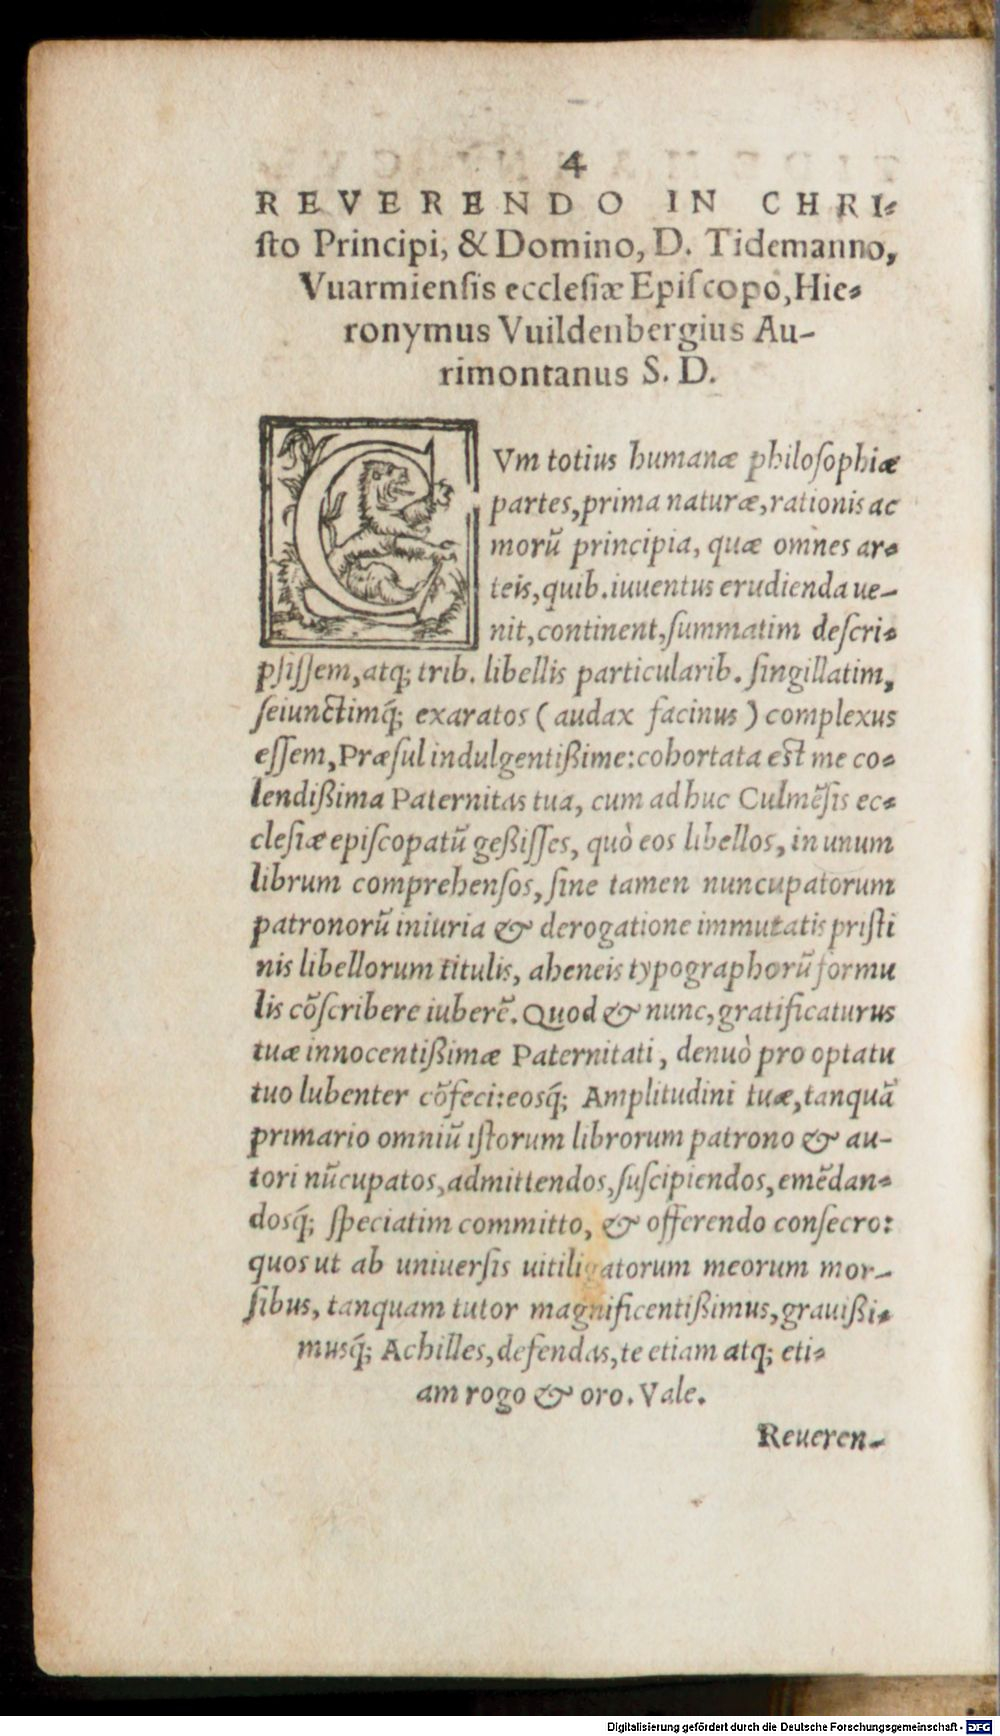 4
REVERENDO IN CHRI-
ſto Principi, & Domino, D. Tidemanno,
Vuarmienſis eccleſiæ Epiſcopo, Hie-
ronymus Vuildenbergius Au-
rimontanus S. D.
CVm totius humanæ philoſophiæ
partes, prima naturæ, rationis ac
morū principia, quæ omnes ar-
teis, quib. iuuentus erudienda ue-
nit, continent, ſummatim deſcri-
pſiſſem, atq; trib. libellis particularib. ſingillatim,
ſeiunctimq́; exaratos ( audax facinus ) complexus
eſſem, Præſul indulgentißime: cohortata eſt me co-
lendißima Paternitas tua, cum adhuc Culmēſis ec-
cleſiæ epiſcopatū geßiſſes, quò eos libellos, in unum
librum comprehenſos, ſine tamen nuncupatorum
patronorū iniuria & derogatione immutatis priſti
nis libellorum titulis, aheneis typographorū formu
lis cōſcribere iuberē. Quod & nunc, gratificaturus
tuæ innocentißimæ Paternitati, denuò pro optatu
tuo lubenter cōfeci: eosq́; Amplitudini tuæ, tanquā
primario omniū iſtorum librorum patrono & au-
tori nūcupatos, admittendos, ſuſcipiendos, emēdan-
dosq́; ſpeciatim committo, & offerendo conſecro:
quos ut ab uniuerſis uitiligatorum meorum mor-
ſibus, tanquam tutor magnificentißimus, grauißi-
musq́; Achilles, defendas, te etiam atq; eti-
am rogo & oro. Vale.
Reueren-
Digitalisierung gefördert durch die Deutsche Forschungsgemeinschaft - DFG